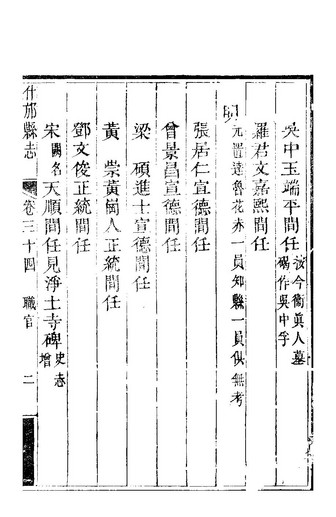 吳中玉端平間任汝今衞眞人墓碣作吳中孚
羅君文嘉熙間任
元置達魯花赤一員知縣一員俱無考
明
張居仁宣德間任
曾景昌宣德間任
梁碩進士宣德間任
黃榮黃岡人正統間任
鄧文俊正統間任
宋闕名天順間任見淨土寺碑史志增
什邡縣志 卷三十四 職官 二